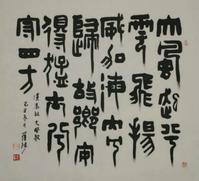 大風起兮
雲飛揚
威加海內兮
歸故鄉安
得猛士兮
守四方
漢高祖大風歌